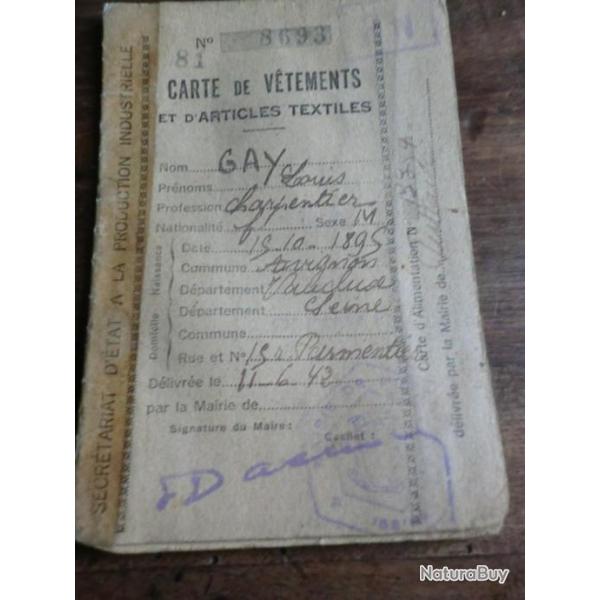 Nº 8693
81
CARTE DE VÊTEMENTS
ET D'ARTICLES TEXTILES
Nom GAY
Prénoms Louis
Profession charpentier
Nationalité f Sexe M
Naissance
Date 15-10-1895
Commune Avignon
Département Vaucluse
Domicile
Département Seine
Commune
Rue et Nº 15 Parmentier
Délivrée le 11-6-43
par la Mairie de
Signature du Maire : Cachet :
SECRÉTARIAT D'ÉTAT A LA PRODUCTION INDUSTRIELLE
Carte d'Alimentation Nº
délivrée par la Mairie de
NaturaBuy